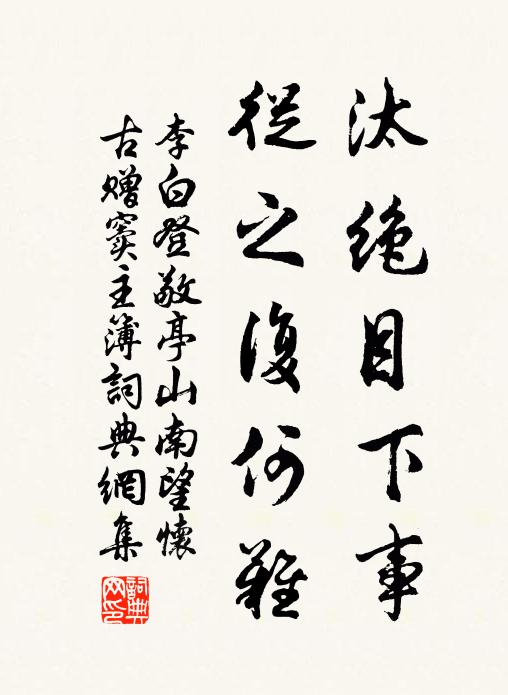 汰絶目下事
從之復何難
李白登敬亭山南望懷
古贈竇主簿詞典網集
詞典網印